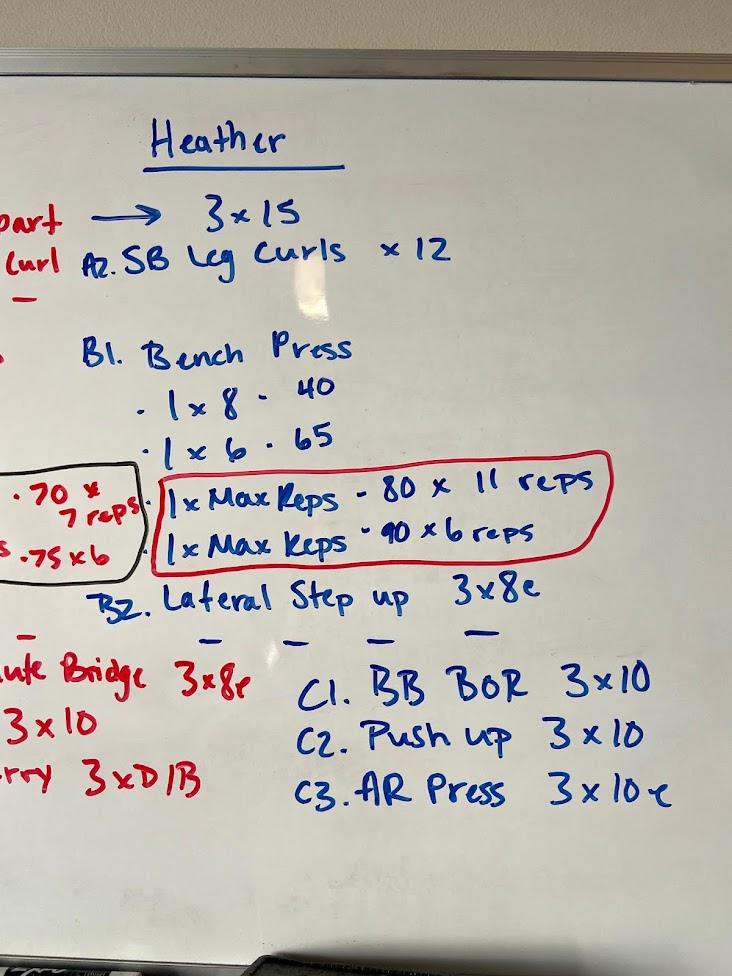 Heather
part → 3 x 15
Curl A2. SB Leg Curls x 12
B1. Bench Press
. 1 x 8 - 40
. 1 x 6 - 65
. 70 x 7 reps
. 1 x Max Reps - 80 x 11 reps
s . 75 x 6 . 1 x Max Reps - 90 x 6 reps
B2. Lateral Step up 3x8e
ute Bridge 3x8e C1. BB BOR 3x10
3 x 10 C2. Push up 3 x 10
rry 3 x D/B C3. AR Press 3 x 10e